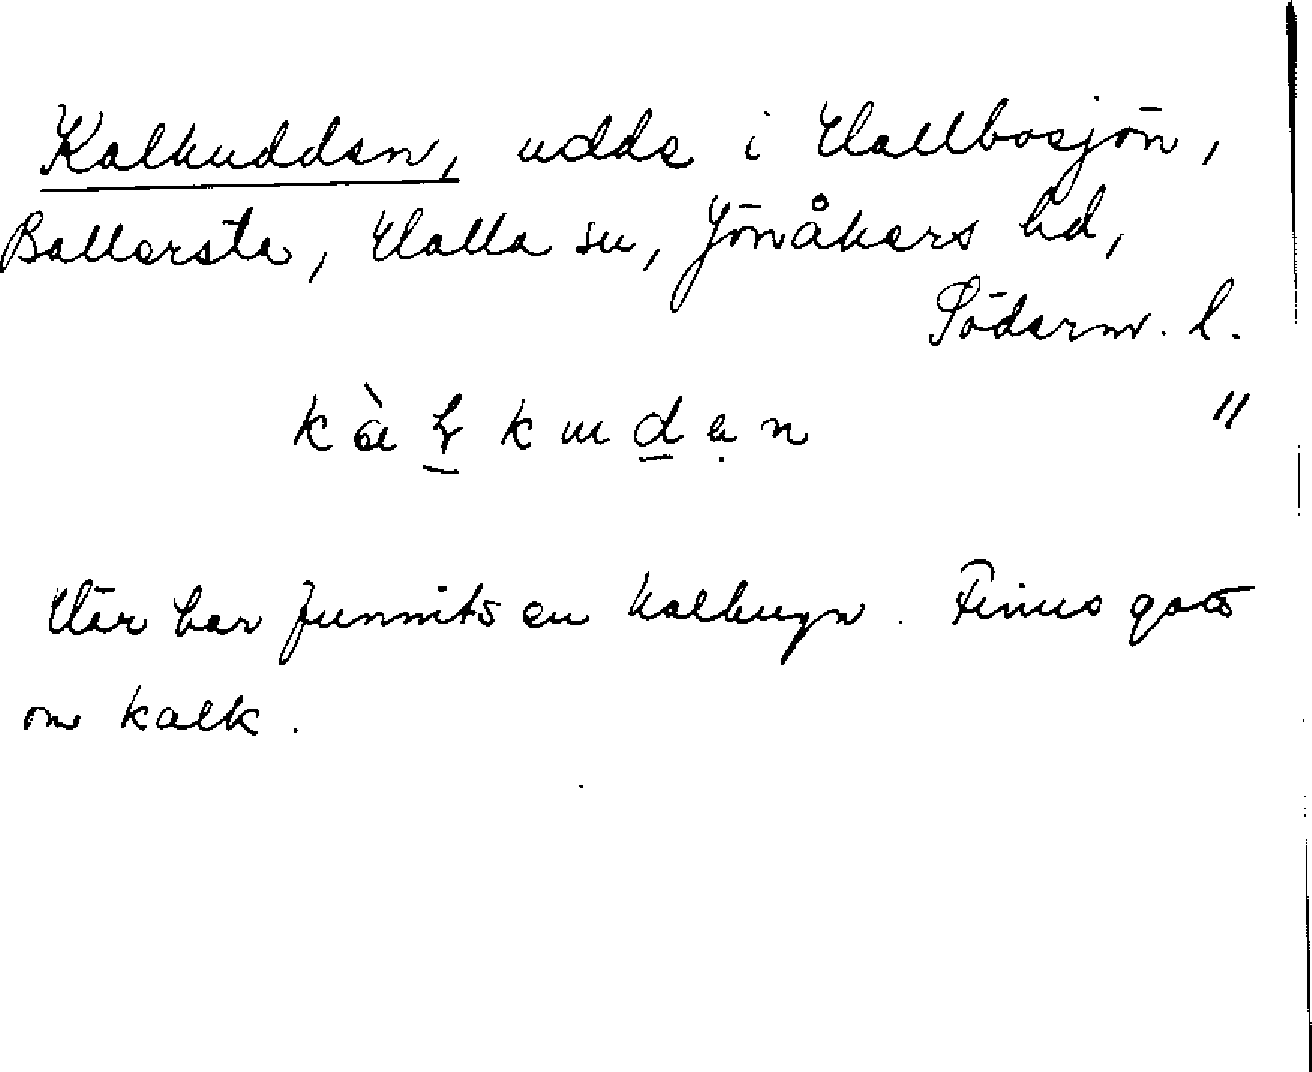 Kalkudden, udde i Hallbosjön,
Ballersta, Halla sn, Jönåkers hd,
Söderm. l.
"
Här har funnits en kalkugn. Finns gott
om kalk.